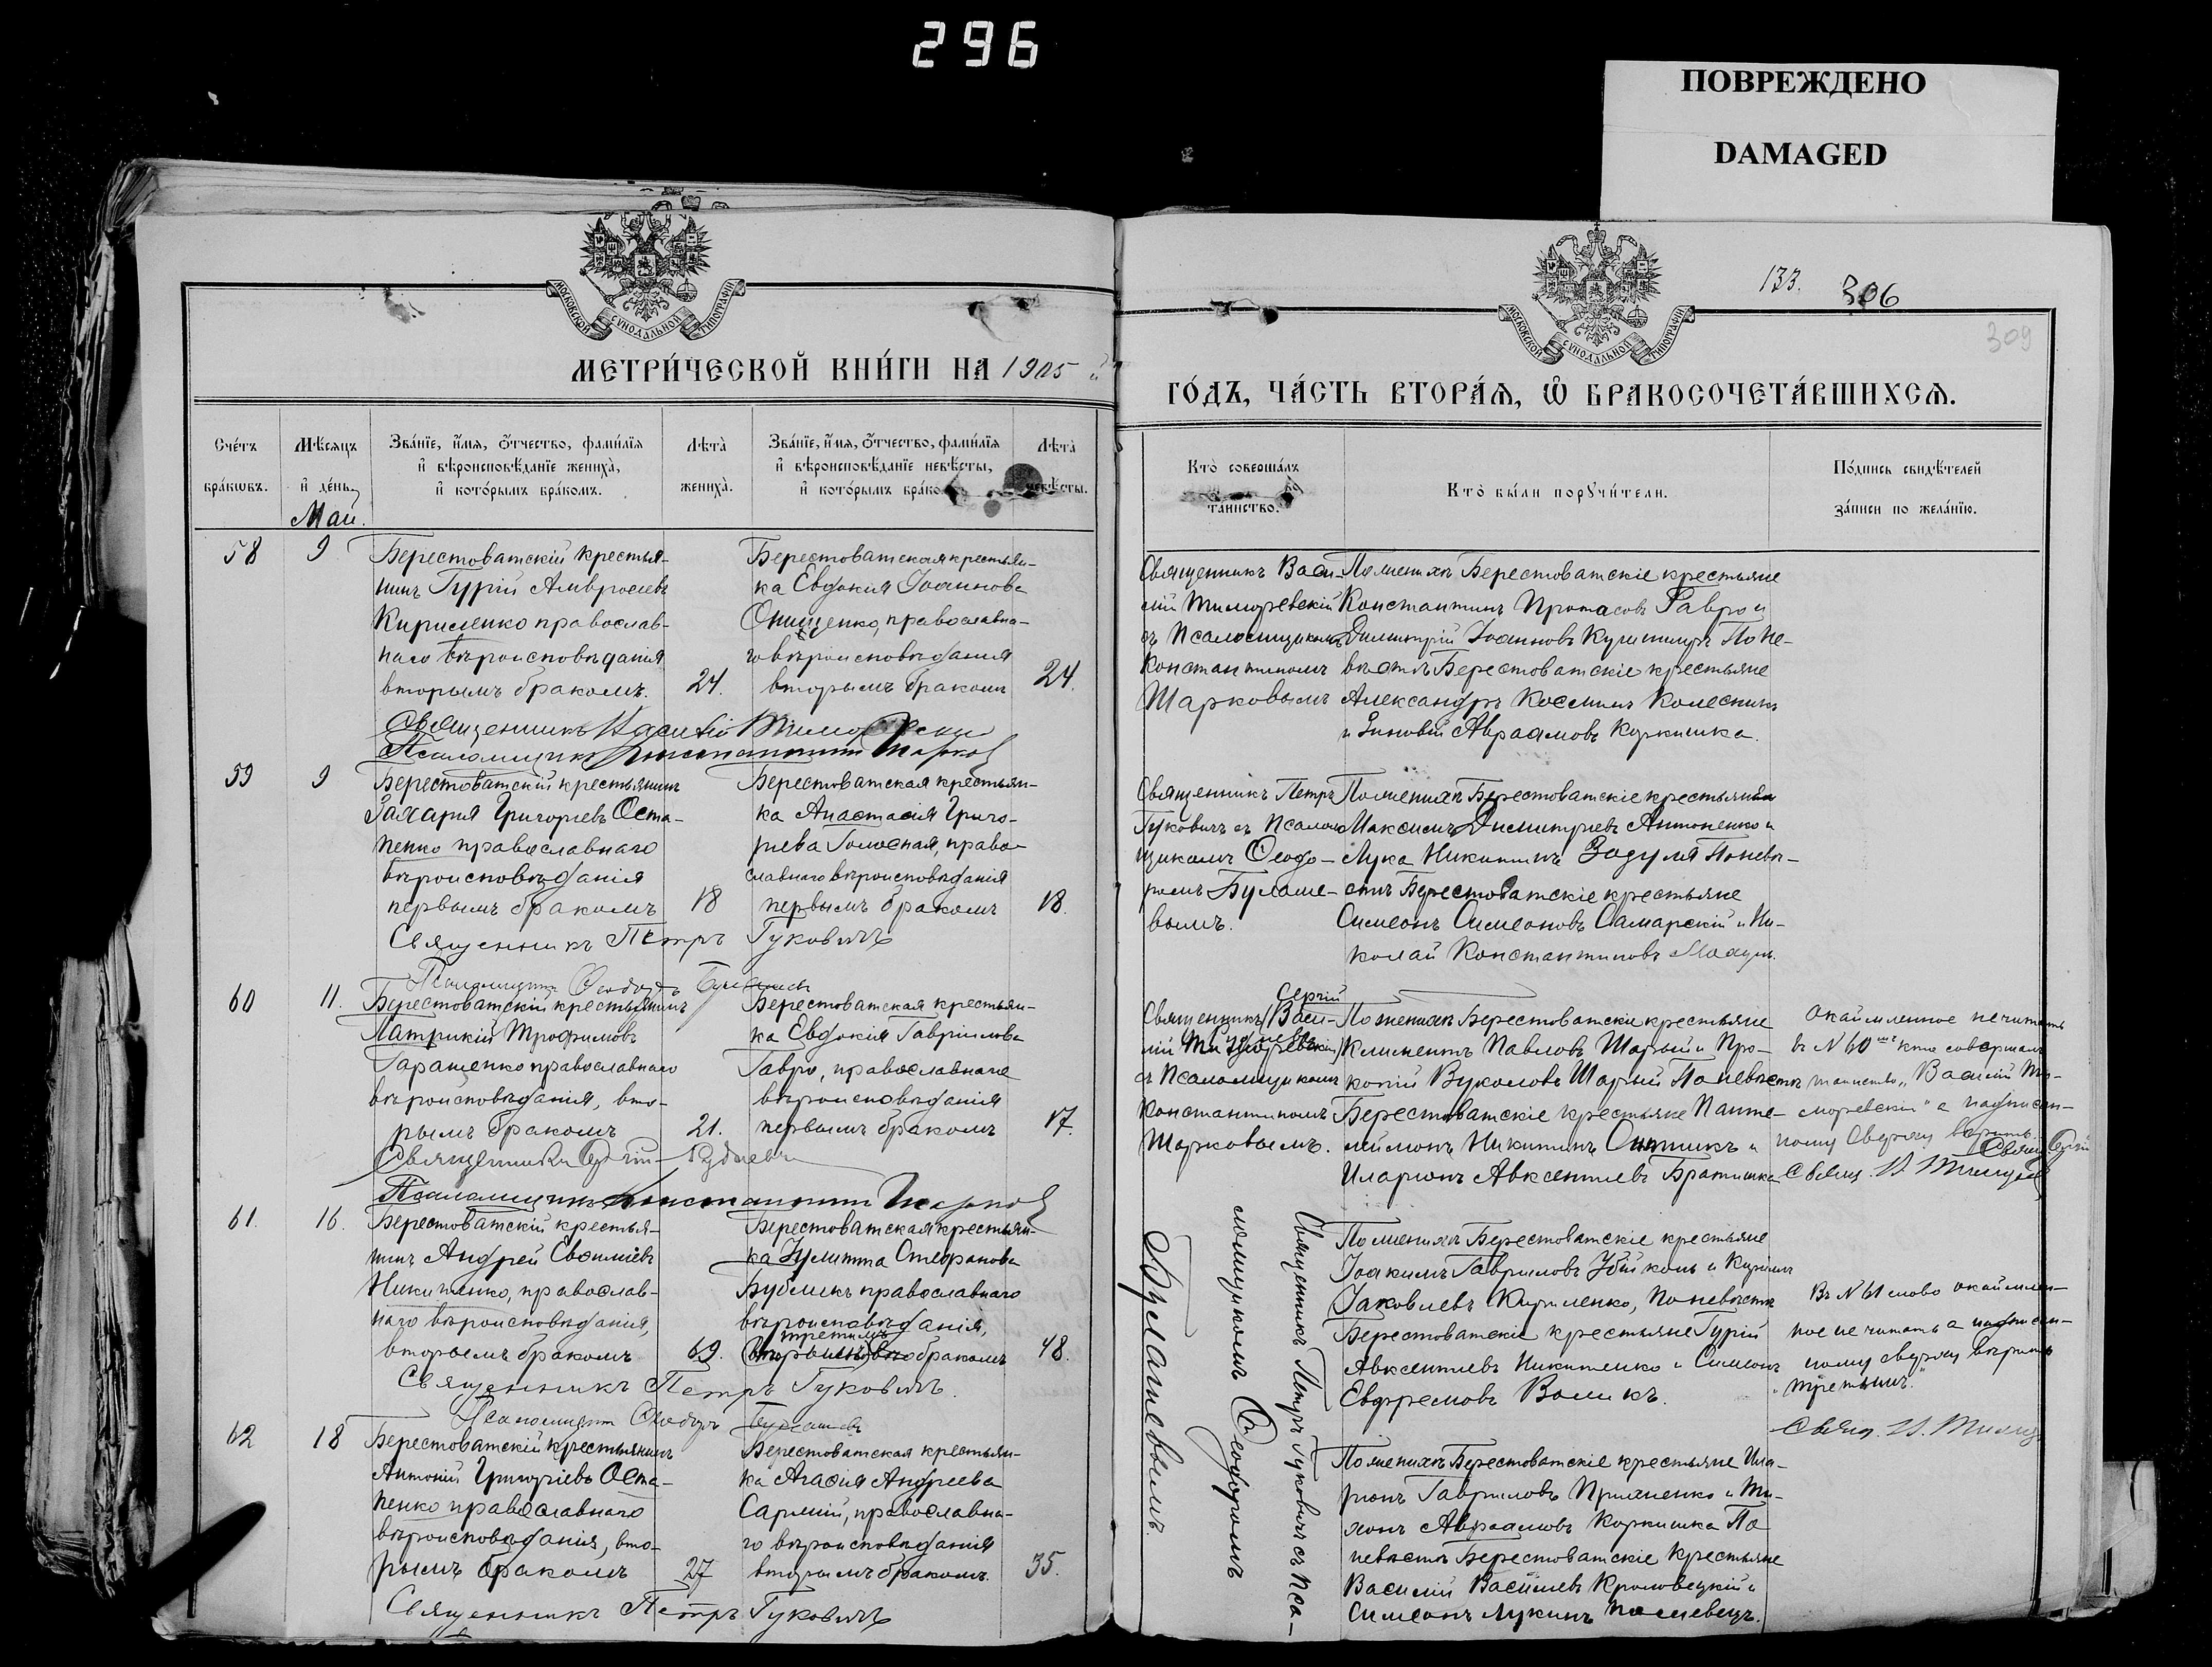 296
ПОВРЕЖДЕНО
DAMAGED
МОСКОВСКОЙ СѴНОДАЛЬНОЙ ТИПОГРАФІИ
МОСКОВСКОЙ СѴНОДАЛЬНОЙ ТИПОГРАФІИ
133. 306
309
МЕТРИ́ЧЕСКОЙ КНИ́ГИ НА 1905
ГО́ДЪ, ЧА́СТЬ ВТОРА́Ѧ, Ѡ҆ БРАКОСОЧЕТА́ВШИХСѦ.
Сче́тъ
бра́кѡвъ.
Мѣ́сѧцъ
и҆ де́нь.
Май.
Зва́нїе, и҆́мѧ, о҆́тчество, фами́лїѧ
и҆ вѣроисповѣ́данїе жениха̀,
и҆ кото́рымъ бра́комъ.
Лѣта̀
жениха̀.
Зва́нїе, и҆́мѧ, о҆́тчество, фами́лїѧ
и҆ вѣроисповѣ́данїе невѣ́сты,
и҆ кото́рымъ бра́ко
Лѣта̀
невѣ́сты.
Кто̀ соверша́лъ
та́инство.
Кто̀ бы́ли порꙋчи́тели.
По́дпись свидѣ́телей
за́писи по жела́нїю.
58
9
Берестоватскій крестья-
нинъ Гурій Амвросіевъ
Кириленко православ-
наго вѣроисповѣданія
вторымъ бракомъ.
24.
Берестоватская крестьян-
ка Евдокія Іоаннова
Онищенко, православна-
го вѣроисповѣданія
вторымъ бракомъ
24.
Священникъ Васи-
лій Тиморевскій
съ Псаломщикомъ
Константиномъ
Шарковымъ
По женихѣ Берестоватскіе крестьяне
Константинъ Протасовъ Гавро и
Димитрій Іоанновъ По не-
вѣстѣ Берестоватскіе крестьяне
Александръ Косминъ Колесникъ
и Зиновій Авраамовъ Коркишка.
Священникъ Василій
Псаломщикъ Константинъ Шарков
59
9
Берестоватскій крестьянинъ
Захарія Григоріевъ Оста-
пенко православнаго
вѣроисповѣданія
первымъ бракомъ
18
Берестоватская крестьян-
ка Анастасія Григо-
рьева Голосная, право-
славнаго вѣроисповѣданія
первымъ бракомъ
18.
Священникъ Петръ
Гуковичъ съ Псалом-
щикомъ Ѳеодо-
ромъ Булаше-
вымъ.
По женихѣ Берестоватскіе крестьяне
Максимъ Димитріевъ Антоненко и
Лука Никитинъ Задуля По невѣ-
стѣ Берестоватскіе крестьяне
Симеонъ Симеоновъ Самарскій и Ни-
колай Константиновъ
Священникъ Петръ Гуковичъ
Псаломщикъ Ѳеодоръ Булашевъ
60
11.
Берестоватскій крестьянинъ
Патрикій Трофимовъ
Гаращенко православнаго
вѣроисповѣданія, вто-
рымъ бракомъ
21.
Берестоватская крестьян-
ка Евдокія Гавріилова
Гавро, православнаго
вѣроисповѣданія
первымъ бракомъ
17.
Сергій
Священникъ (Васи-
лій Тиморевскій)
съ Псаломщикомъ
Константиномъ
Шарковымъ.
По женихѣ Берестоватскіе крестьяне
Климентъ Павловъ Шарый и Про-
копій Вуколовъ Шарый По невѣстѣ
Берестоватскіе крестьяне Панте-
леймонъ Никитинъ Сытникъ и
Иларіонъ Авксентіевъ Братишка
Окаймленное не читать
въ № 60мъ кто совершалъ
таинство „Василій Ти-
моревскій" а надписан-
ному сверху вѣрить.
Свящ.
Священникъ Сергій
Псаломщикъ Константинъ Шарков
61.
16.
Берестоватскій крестья-
нинъ Андрей Евфиміевъ
Никитенко, православ-
наго вѣроисповѣданія,
вторымъ бракомъ
69.
Берестоватская крестьян-
ка Іулитта Стефанова
Бубликъ православнаго
вѣроисповѣданія,
третьимъ
(вторымъ) бракомъ
48.
Священникъ Петръ Гуковичъ съ Пса-
ломщикомъ Ѳеодоромъ
Булашевымъ.
По женихѣ Берестоватскіе крестьяне
Іоакимъ Гавриловъ и Кирилъ
Іаковлевъ Кириленко, По невѣстѣ
Берестоватскіе крестьяне Гурій
Авксентіевъ Никитенко и Симеонъ
Евфремовъ Воликъ.
Въ № 61 слово окаймлен-
ное не читать а надписан-
ному сверху вѣрить
„третьимъ".
Свящ.
Священникъ Петръ Гуковичъ.
Псаломщикъ Ѳеодоръ Булашевъ
62
18
Берестоватскій крестьянинъ
Антоній Григоріевъ Оста-
пенко православнаго
вѣроисповѣданія, вто-
рымъ бракомъ
27
Берестоватская крестьян-
ка Агафія Андреева
православна-
го вѣроисповѣданія
вторымъ бракомъ.
35.
По женихѣ Берестоватскіе крестьяне Ила-
ріонъ Гавриловъ и Ти-
хонъ Авраамовъ Коркишка По
невѣстѣ Берестоватскіе крестьяне
Василій Васильевъ Кроловецкій и
Симеонъ Лукинъ
Священникъ Петръ Гуковичъ